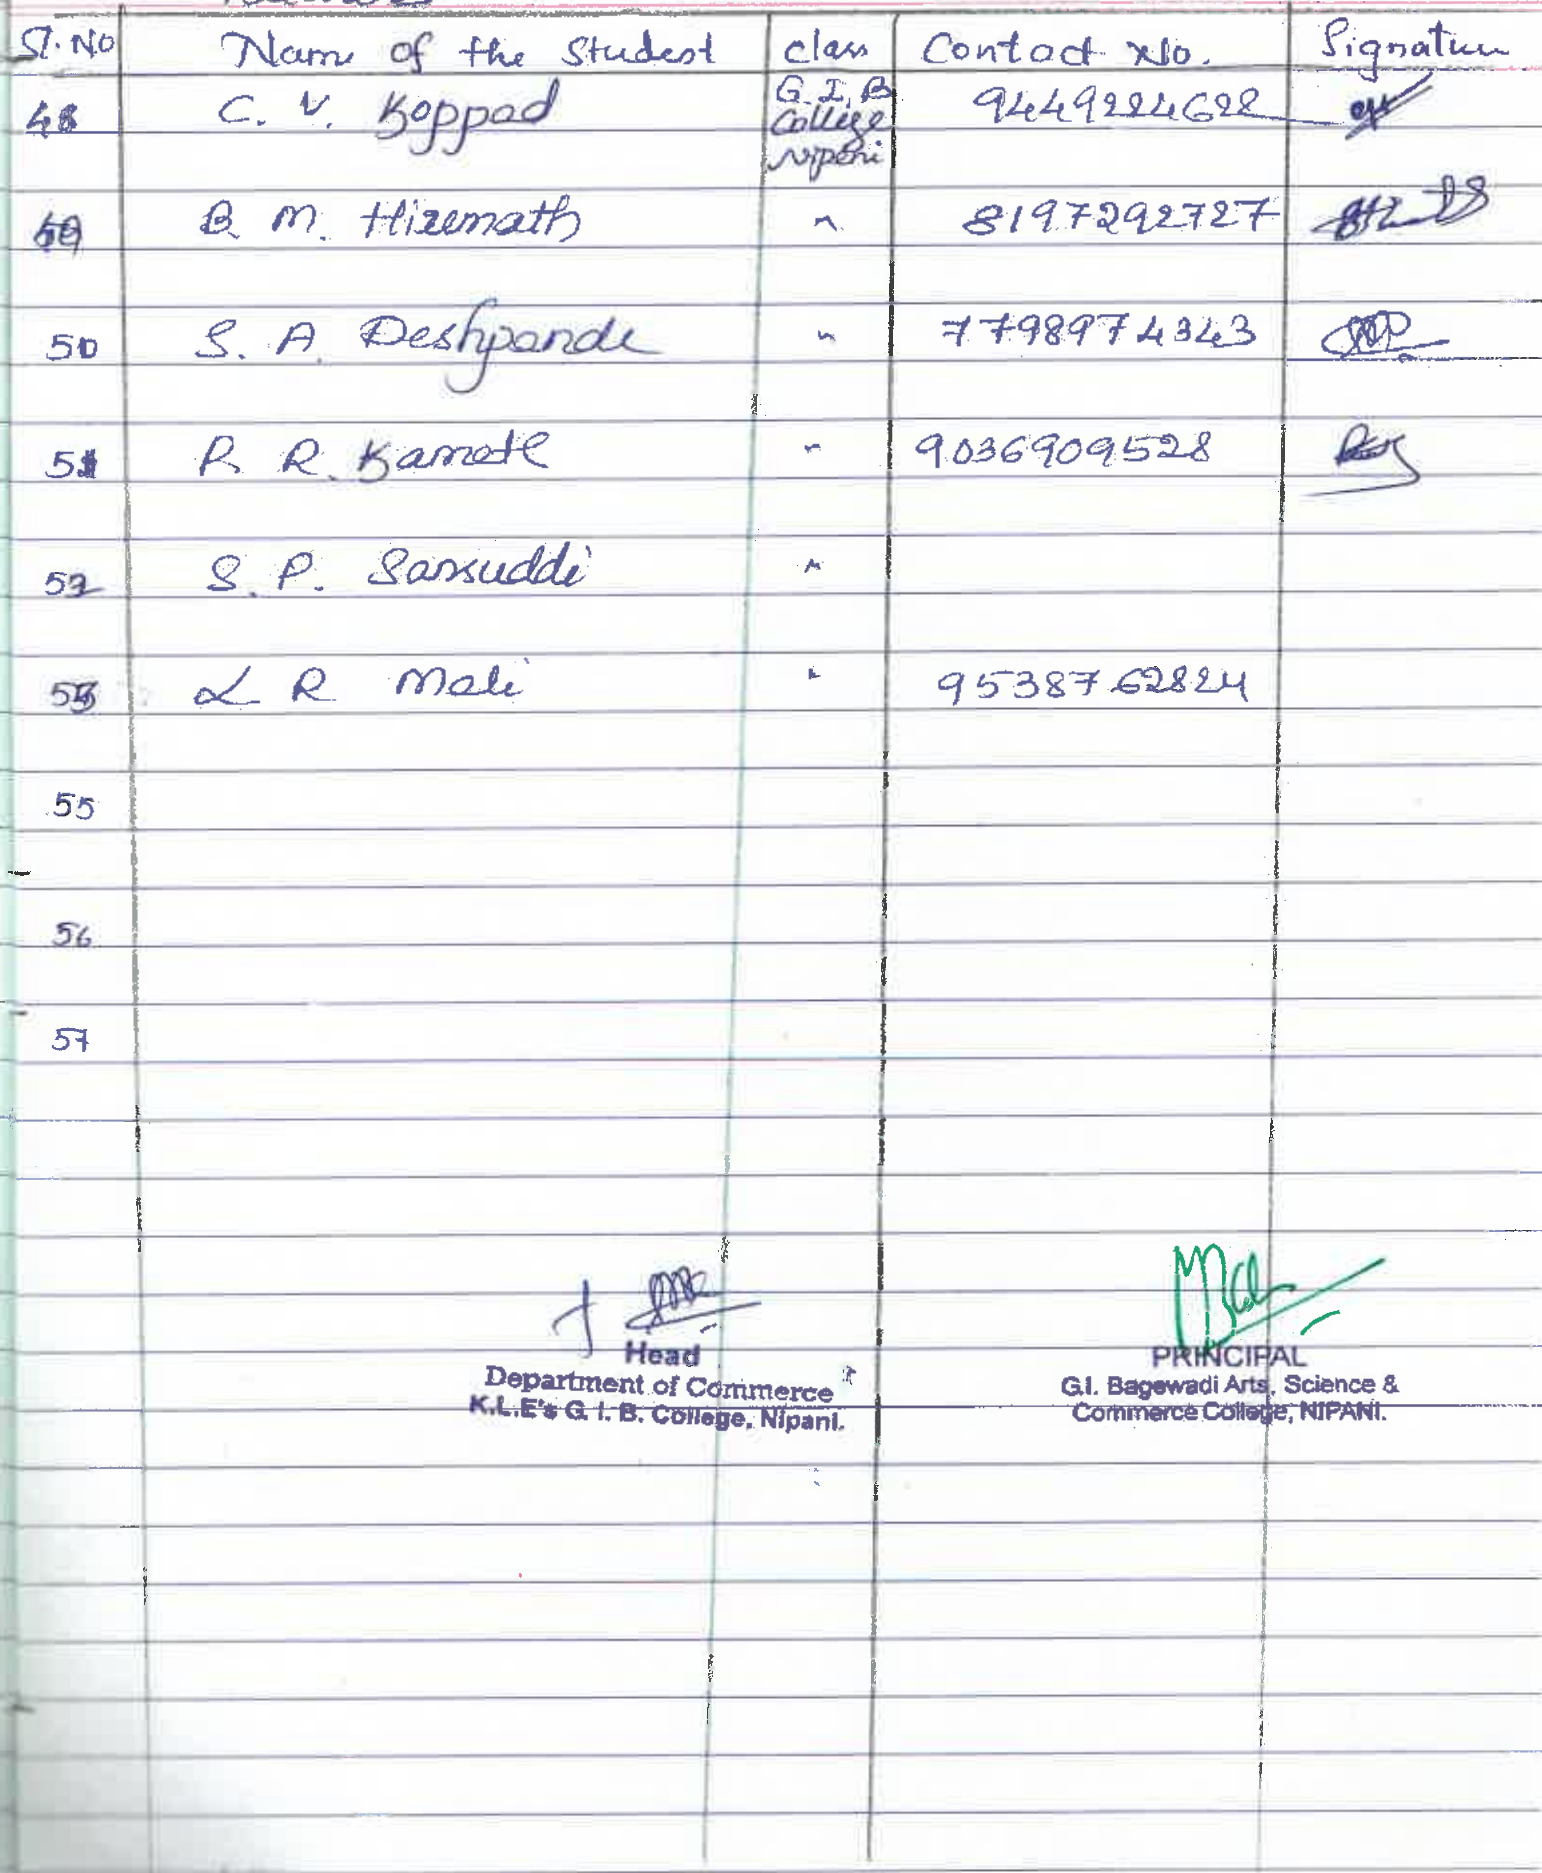 Sl. No Name of the Student class Contact No. Signature
48 C. V. Koppad G. I. B College Nipani 9449224622
49 B. M. Hiremath " 8197292727
50 S. A. Deshpande " 7798974343
51 R. R. Kamate " 9036909528
52 S. P. Sansuddi "
53 L R Mali " 9538762824
55
56
57
Head
Department of Commerce
K.L.E's G. I. B. College, Nipani.
PRINCIPAL
G.I. Bagewadi Arts, Science &
Commerce College, NIPANI.